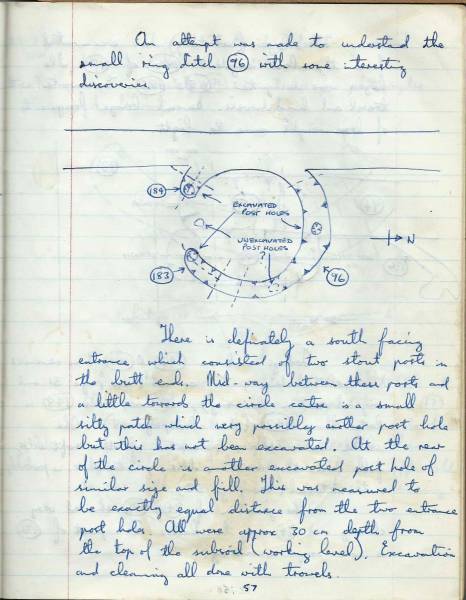 An attempt was made to understand the
small ring ditch (96) with some interesting
discoveries.
184
EXCAVATED
POST HOLES
UNEXCAVATED
POST HOLES
?
N
183
96
There is definately a south facing
entrance which consisted of two stout posts in
the butt ends. Mid-way between these posts and
a little towards the circle centre is a small
silty patch which very possibley another post hole
but this has not been excavated. At the rear
of the circle is another excavated post hole of
similar size and fill. This was measured to
be exactly equal distance from the two entrance
post holes. All were approx 30 cm depth from
the top of the subsoil (working level). Excavation
and cleaning all done with trowels.
57